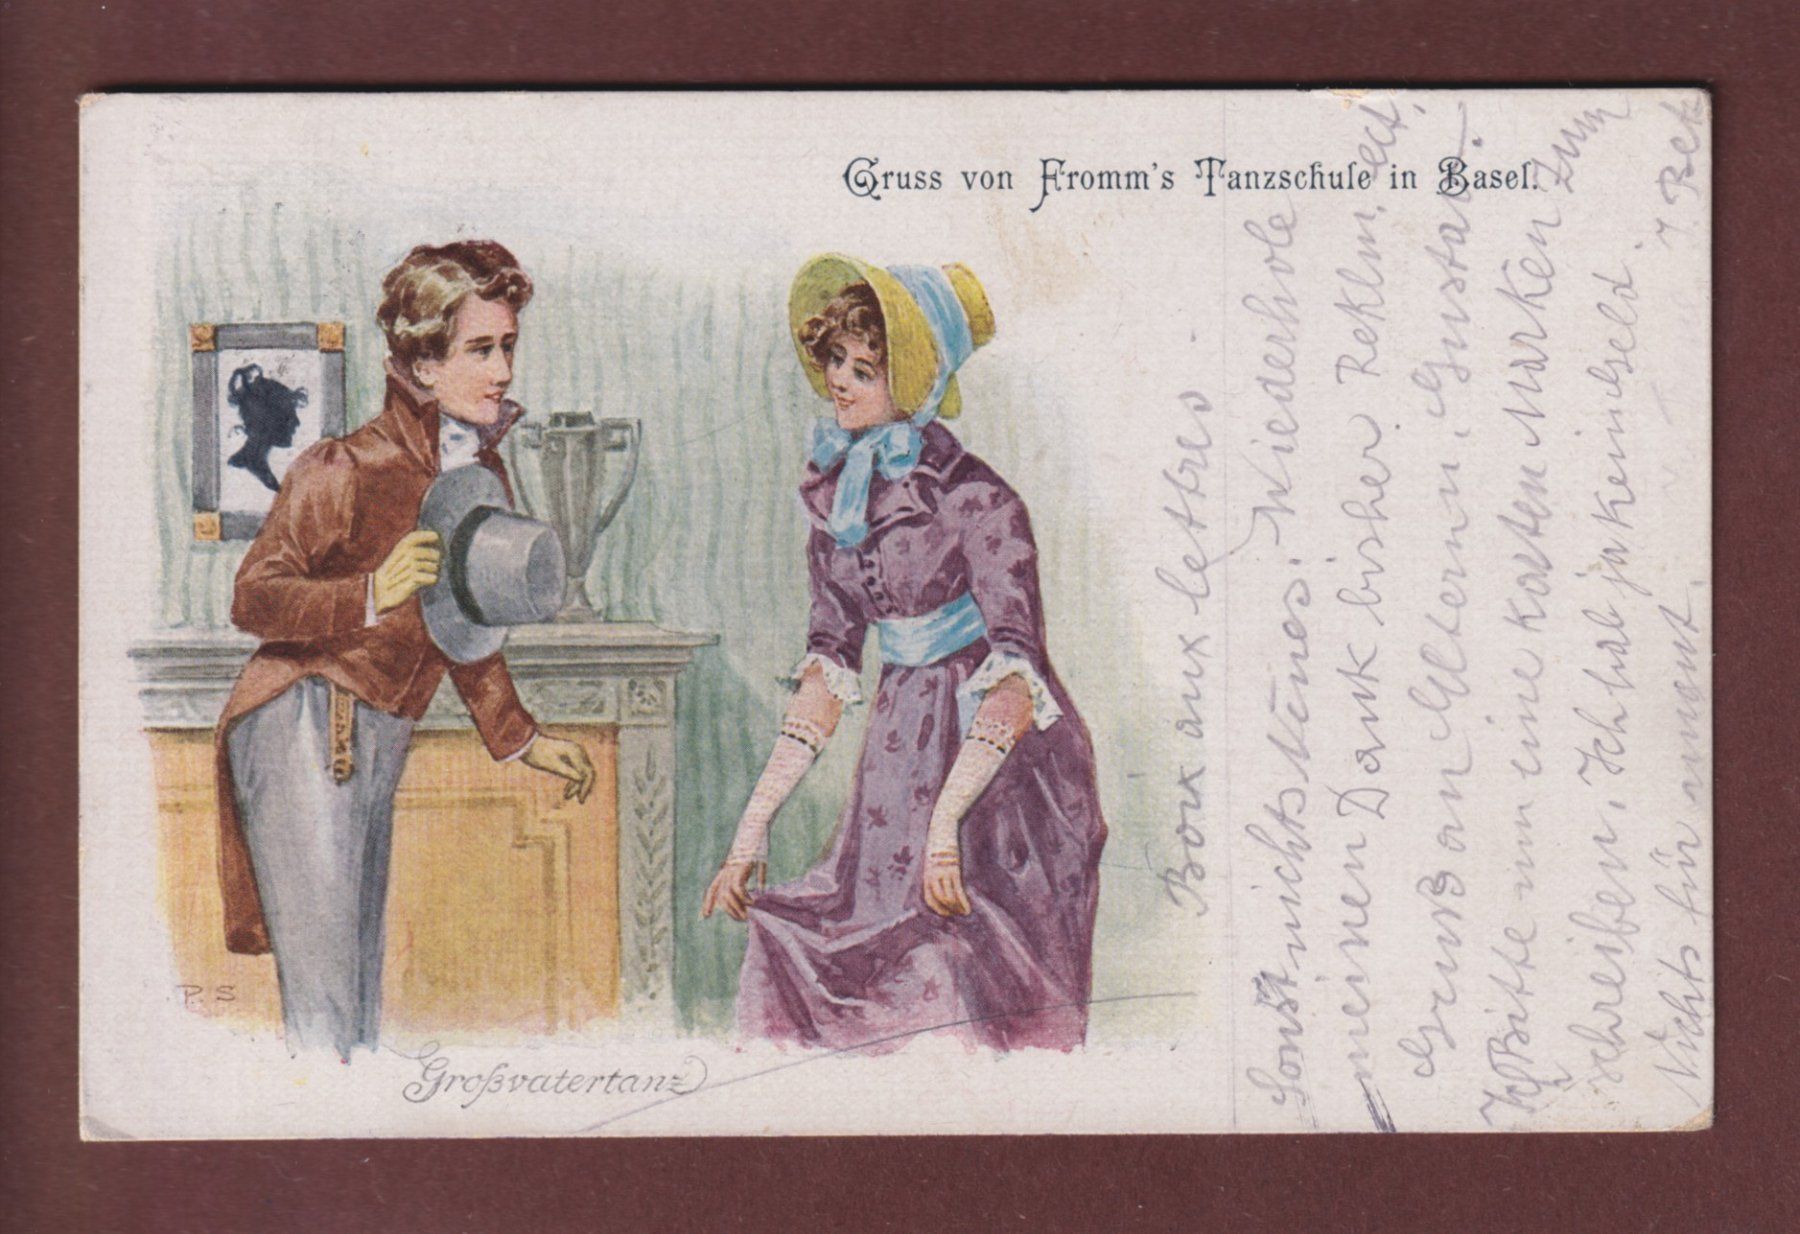 Gruss von Fromm's Tanzschule in Basel.
P. S
Großvatertanz
Boix aux lettres.
Sonst nichts Neues. Wiederhole
meinen Dank bisher
Gruß an Eltern, Gustav.
Bitte um eine Karten Marken zum
schreiben. Ich hab ja kein Geld.
Nichts für